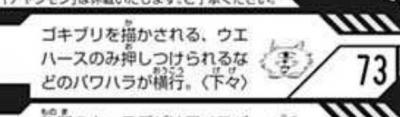 ゴキブリを描かされる、ウエ
ハースのみ押しつけられるな
どのパワハラが横行。〈下々〉
73